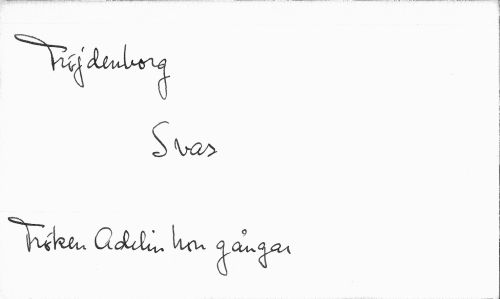 Fröjdenborg
Svas
Fröken Adelin hon gångar